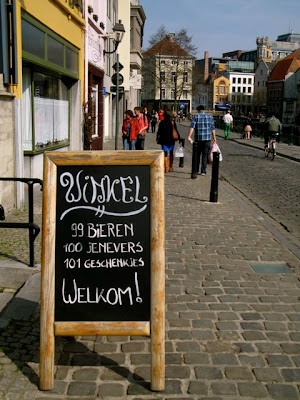 Winkel
99 BIEREN
100 JENEVERS
101 GESCHENKJES
WELKOM!